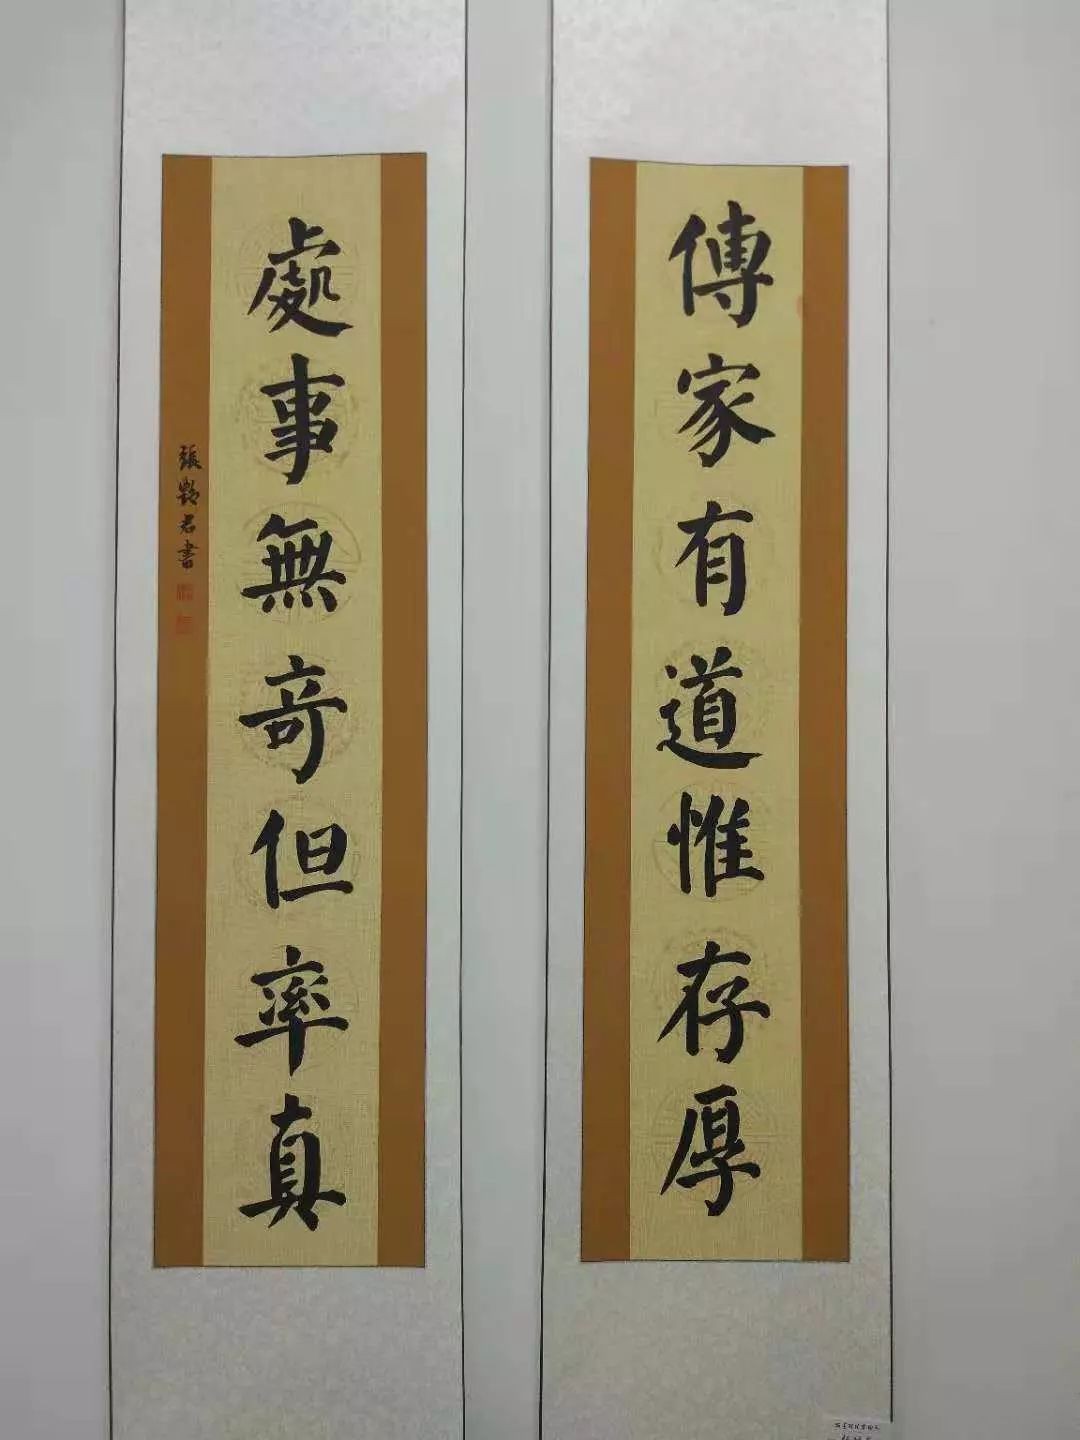 傳家有道惟存厚
處事無奇但率真
張艷君書